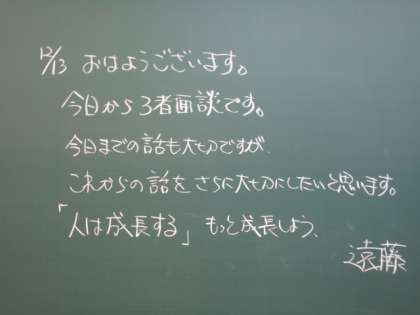 12/13 おはようございます。
今日から3者面談です。
今日までの話も大切ですが
これからの話をさらに大切にしたいと思います。
「人は成長する」もっと成長しよう、
遠藤